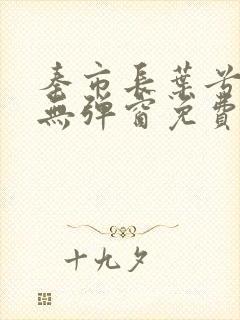 秦市長葉兮
無彈窗免費
十九夕